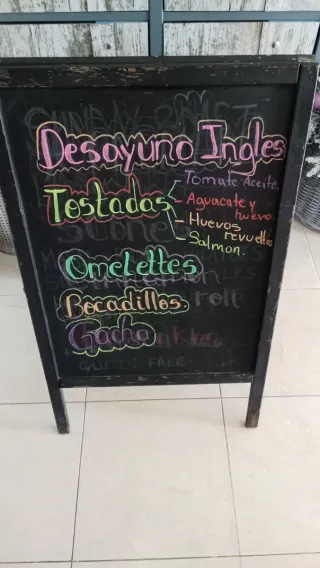 Desayuno Ingles
Tostadas
- Tomate Aceite
- Aguacate y
huevo.
- Huevos
revueltos
- Salmon.
Omelettes
Bocadillos
Gacha
GLUTEN FREE